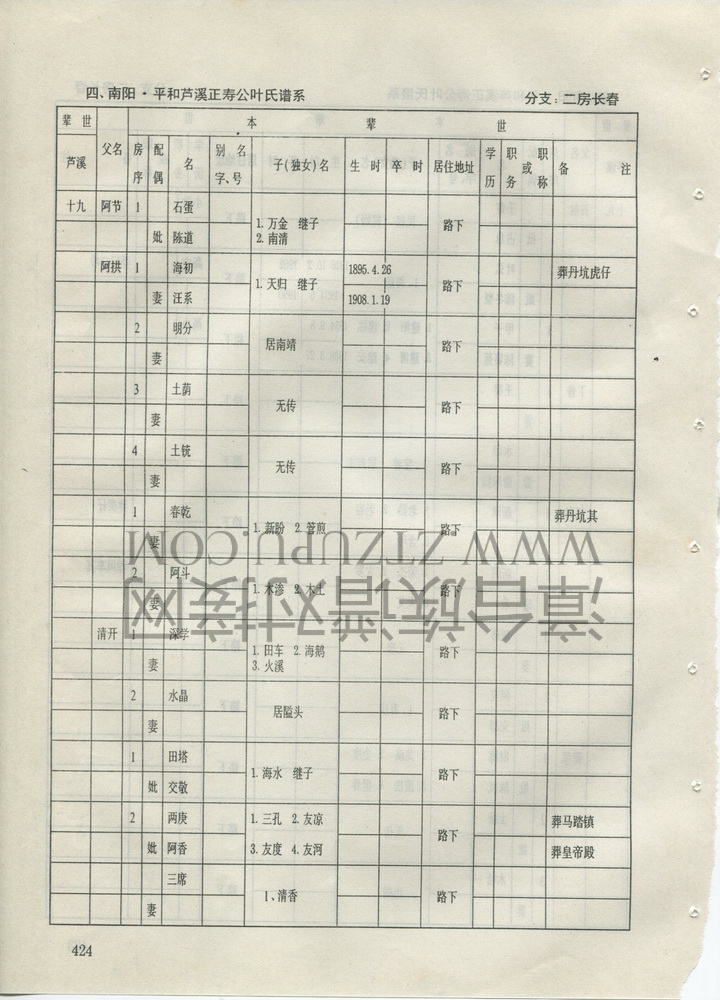 四、南阳·平和芦溪正寿公叶氏谱系 分支：二房长春
辈世 本辈世
芦溪 父名 房序 配偶 名 别名字、号 子（独女）名 生时 卒时 居住地址 学历 职务或职称 备注
十九 阿节 1 石蛋 1. 万金 继子 路下
妣 陈道 2. 南清
阿拱 1 海初 1. 天归 继子 1895.4.26 路下 葬丹坑虎仔
妻 汪系 1908.1.19
2 明分 居南靖 路下
妻
3 土荫 无传 路下
妻
4 土铳 无传 路下
妻
1 春乾 1. 新盼 2. 管煎 路下 葬丹坑其
妻
2 阿斗 1. 木渗 2. 木土 路下
妻
清开 1 深学 1. 田车 2. 海鹅 路下
妻 3. 火溪
2 水晶 居隘头 路下
妻
1 田塔 1. 海水 继子 路下
妣 交敬
2 两庚 1. 三孔 2. 友凉 路下 葬马踏镇
妣 阿香 3. 友度 4. 友河 葬皇帝殿
三席 1、清香 路下
妻
424
WWW.ZTZUPU.COM
漳台族谱对接网